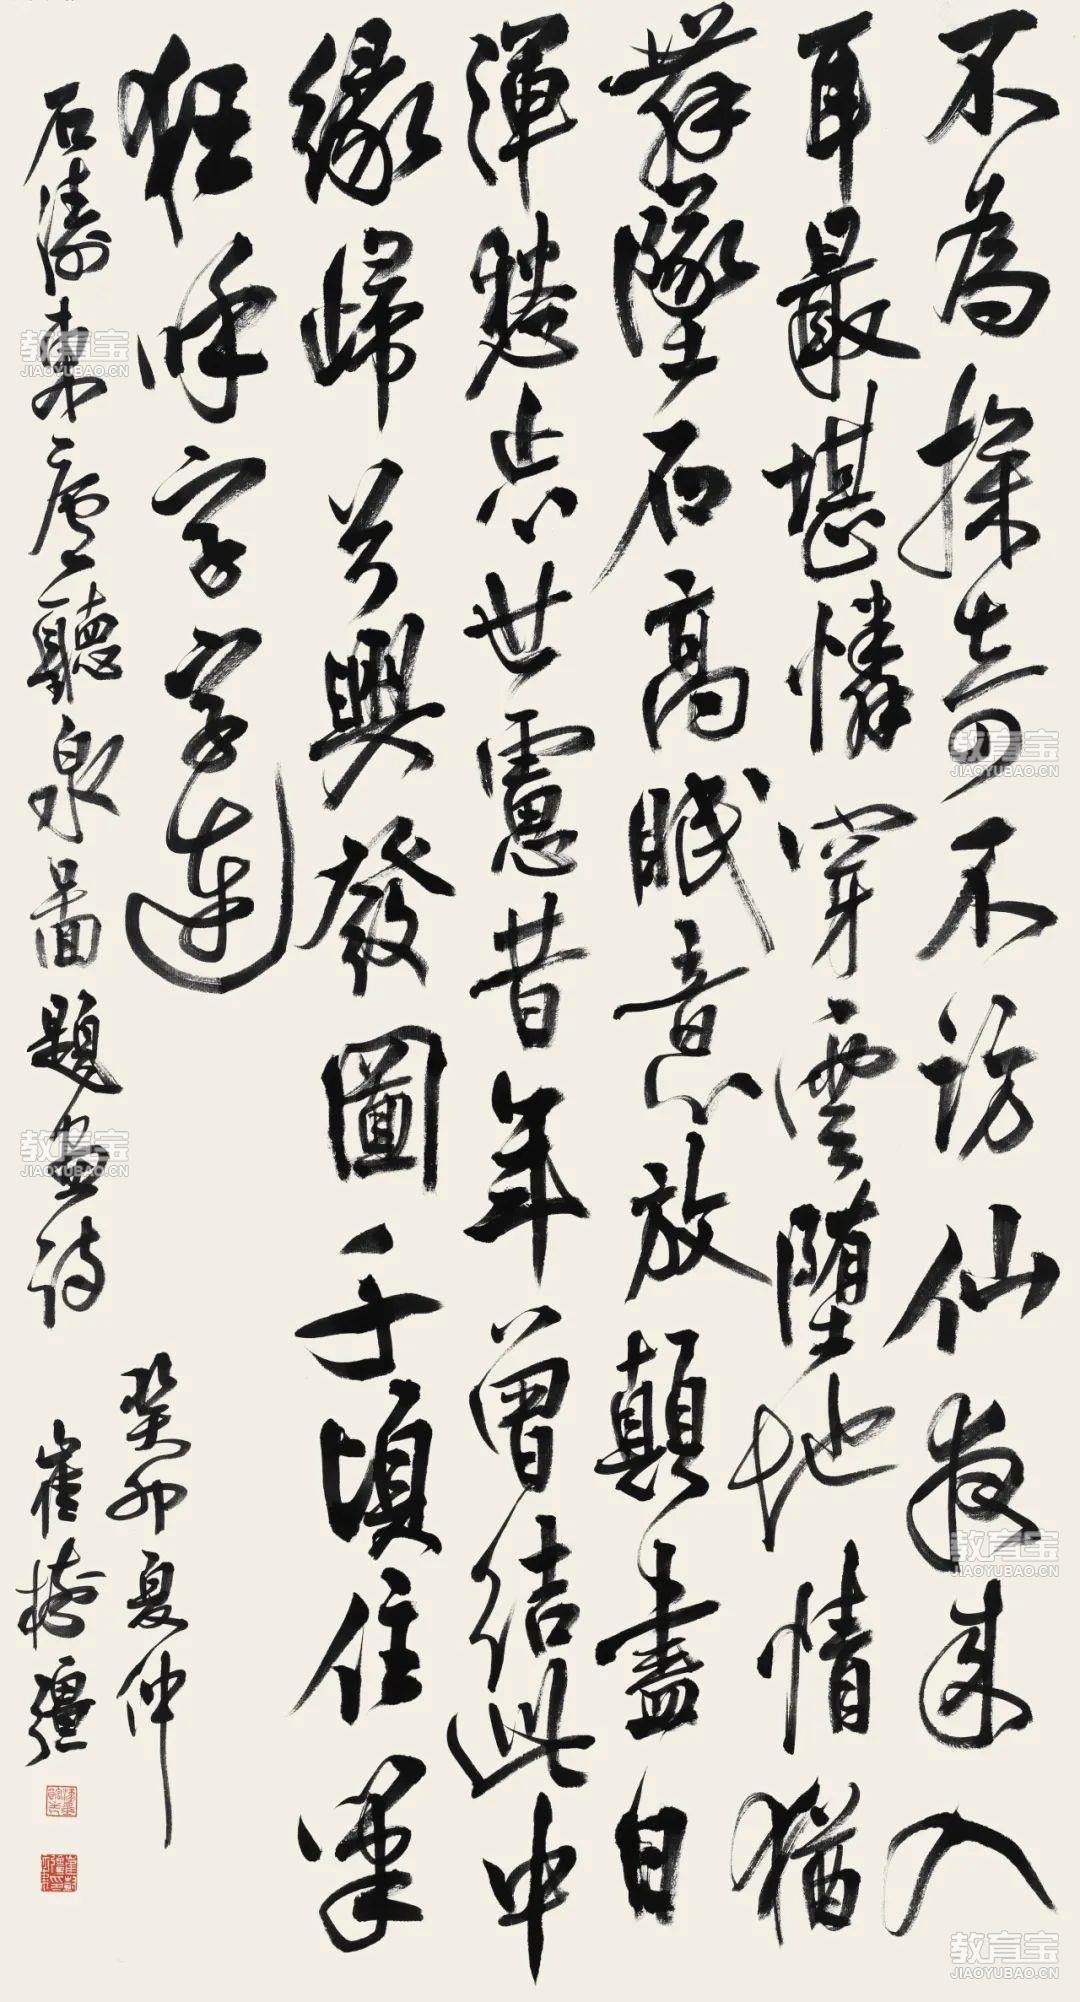 不為探奇不訪仙夜來入
耳最堪憐穿雲墮地情猶
舞墜石高眠意放顛盡自
渾忘世慮昔年曾結此中
緣歸兮興發圖千頃住筆
狂呼字字連
石濤東廬聽泉圖題畫詩
癸卯夏仲
崔樹強
教育宝
JIAOYUBAO.CN
教育宝
JIAOYUBAO.CN
教育宝
JIAOYUBAO.CN
教育宝
JIAOYUBAO.CN
教育宝
JIAOYUBAO.CN